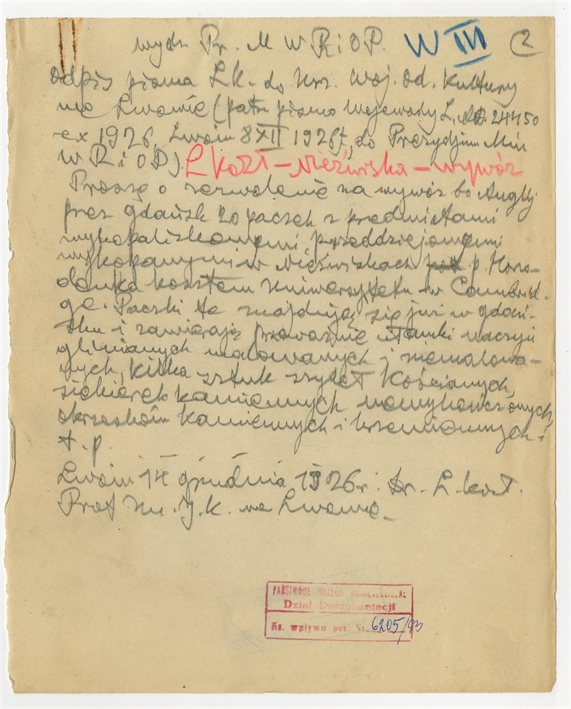 wydz. Pr. M W R i O P. W III (2
odpis pisma L.K. do Urz. Woj. od. Kultury
we Lwowie (patrz pismo Wojewody L. 24450
ex 1926, Lwów 8 XII 1926 r, do Prezydjum Min
W R i O P.) L Kozł – Nieźwiska – wywóz
Proszę o zezwolenie na wywóz do Anglji
przez Gdańsk 20 paczek z przedmiotami
wykopaliskowymi, przeddziejowymi
wykopanymi w Nieźwiskach p. Horo-
denka kosztem Uniwersytetu w Cambrid-
ge. Paczki te znajdują się już w Gdań-
sku i zawierają przeważnie ułamki naczyń
glinianych malowanych i niemalowa-
nych, kilka sztuk szydeł kościanych,
siekierek kamiennych niewykończonych,
okrzesków kamiennych i krzemiennych i
t. p.
Lwów 14 grudnia 1926 r. Dr. L. Kozł.
Prof Un. J. K. we Lwowie
PAŃSTWOWE MUZEUM ARCHEOLOGICZNE
Dział Dokumentacji
Ks. wpływu poz. Nr. 6205/93